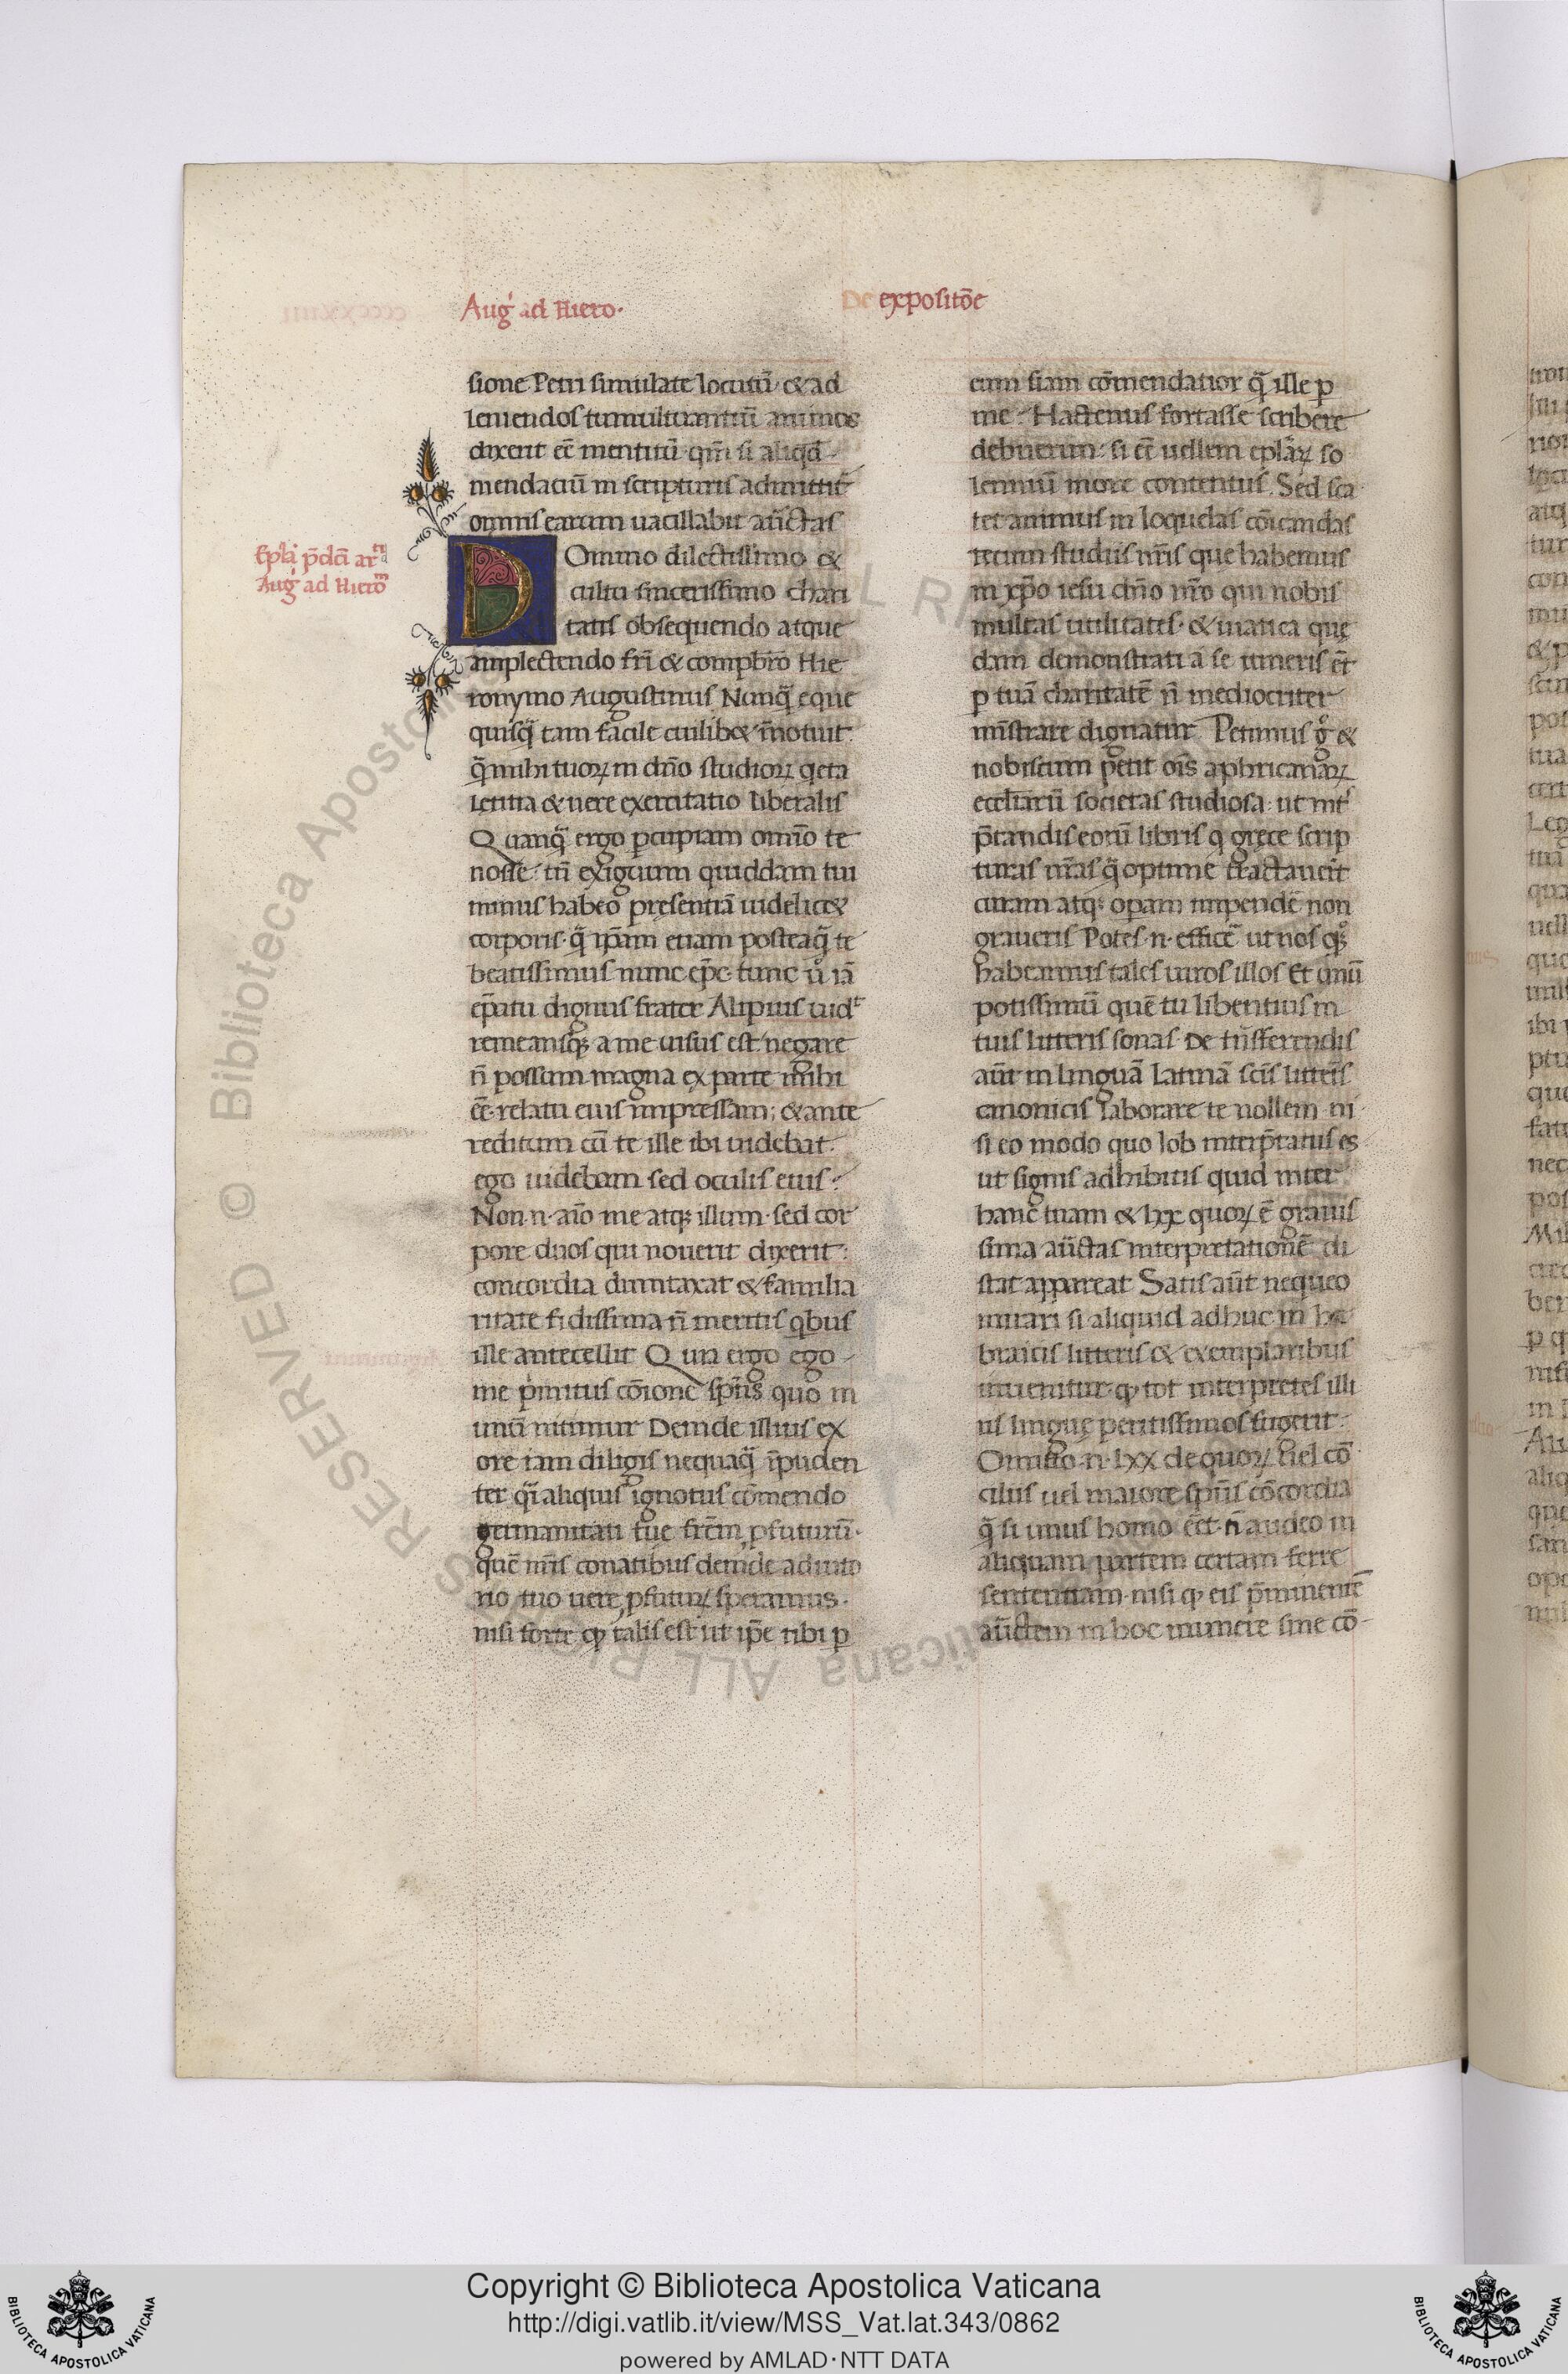 Aug᷑ ad Hiero.
De expositōe
sione Petri simulate locutū· & ad
leniendos tumultuantiū animos
dixerit eē mentitū qm̄ si aliqd
mendaciū in scripturis admittit᷑
omnis earum uacillabit aūctas
Ep̄la p̄dcī
Aug᷑ ad Hieroᵐ
DOmino dilectissimo &
cultu sincerissimo chari
tatis obsequendo atque
amplectendo frī & compbrō Hie
ronymo Augustinus Nunq̄ eque
quisq̄ tam facile cuilib& īnotuit
q̄ mihi tuoꝝ in dnō studioꝝ qeta
letitia & uere exercitatio liberalis
Quanq̄ ergo percupiam omīo te
nosse· tn̄ exiguum quiddam tui
minus habeo presentiā uidelic&
corporis· q̄ ip̄am etiam posteaq̄ te
beatissimus nunc ep̄c tunc ů iā
ep̄atu dignus frater Alipius uidᵗ
remeansq; a me uisus est negare
n̄ possum magna ex parte mihi
eē· relatu eius impressam; & ante
reditum cū te ille ibi uidebat
ego uidebam sed oculis eius:
Non·n· aīo me atq; illum· sed cor
pore duos qui nouerit dixerit:
concordia dumtaxat & familia
ritate fidissima n̄ meritis qbus
ille antecellit Quia ergo ego
me primitus cōione sp̄us quo in
unū nitimur Deinde illius ex
ore iam diligis nequaq̄ īpuden
ter q̄i aliquis ignotus cōmendo
germanitati tue frēm ꝓfuturū·
quē nr̄is conatibus deinde adiuto
rio tuo uere ꝓfuturꝝ speramus·
nisi forte ꝙ talis est ut ip̄e tibi ꝑ
eum fiam cōmendatior q̄ ille ꝑ
me· Hactenus fortasse scribere
debuerim: si eē uellem ep̄laꝝ so
lenniū more contentus. Sed sca
tet animus in loquelas cōicandas
tecum studiis nr̄is que habemus
in xp̄o iesu dn̄o nr̄o qui nobis
multas utilitates· & uiatica quę
dam demonstrati a se itineris ēt
ꝑ tuā charitatē n̄ mediocriter
mīstrare dignatur Petimus g̊ &
nobiscum petit oīs aphricanaꝝ
eccliarū societas studiosa: ut int᷑
p̄tandis eorū libris q grece scrip
turas nr̄as q̄ optime tractauert
curam atq; operam impendē non
graueris Potes·n· efficē ut nos qq̊;
habeamus tales uiros illos Et unū
potissimū quē tu libentius in
tuis litteris sonas De trn̄sferendis
aūt in linguā latinā scīs litteris
canonicis laborare te nollem ni
si eo modo quo Iob interp̄tatus es
ut signis adhibitis quid inter
hanc tuam & lxx quoꝝ ē grauis
sima aūctas interpretationē di
stat appareat Satis aūt nequeo
mirari si aliquid adhuc in he
braicis litteris & exemplaribus
inuenitur· ꝙ tot interpretes illi
us linguę peritissimos fugerit:
Omitto·n· lxx de quoꝝ uel cō
ciliis uel maiore sp̄us cōcordia
q̄ si unus homo eēt· n̄ audeo in
aliquam partem certam ferre
sententiam· nisi ꝙ eis p̄minentē
aūctem in hoc munere sine cō
Copyright © Biblioteca Apostolica Vaticana
http://digi.vatlib.it/view/MSS_Vat.lat.343/0862
powered by AMLAD·NTT DATA
BIBLIOTECA APOSTOLICA VATICANA
BIBLIOTECA APOSTOLICA VATICANA